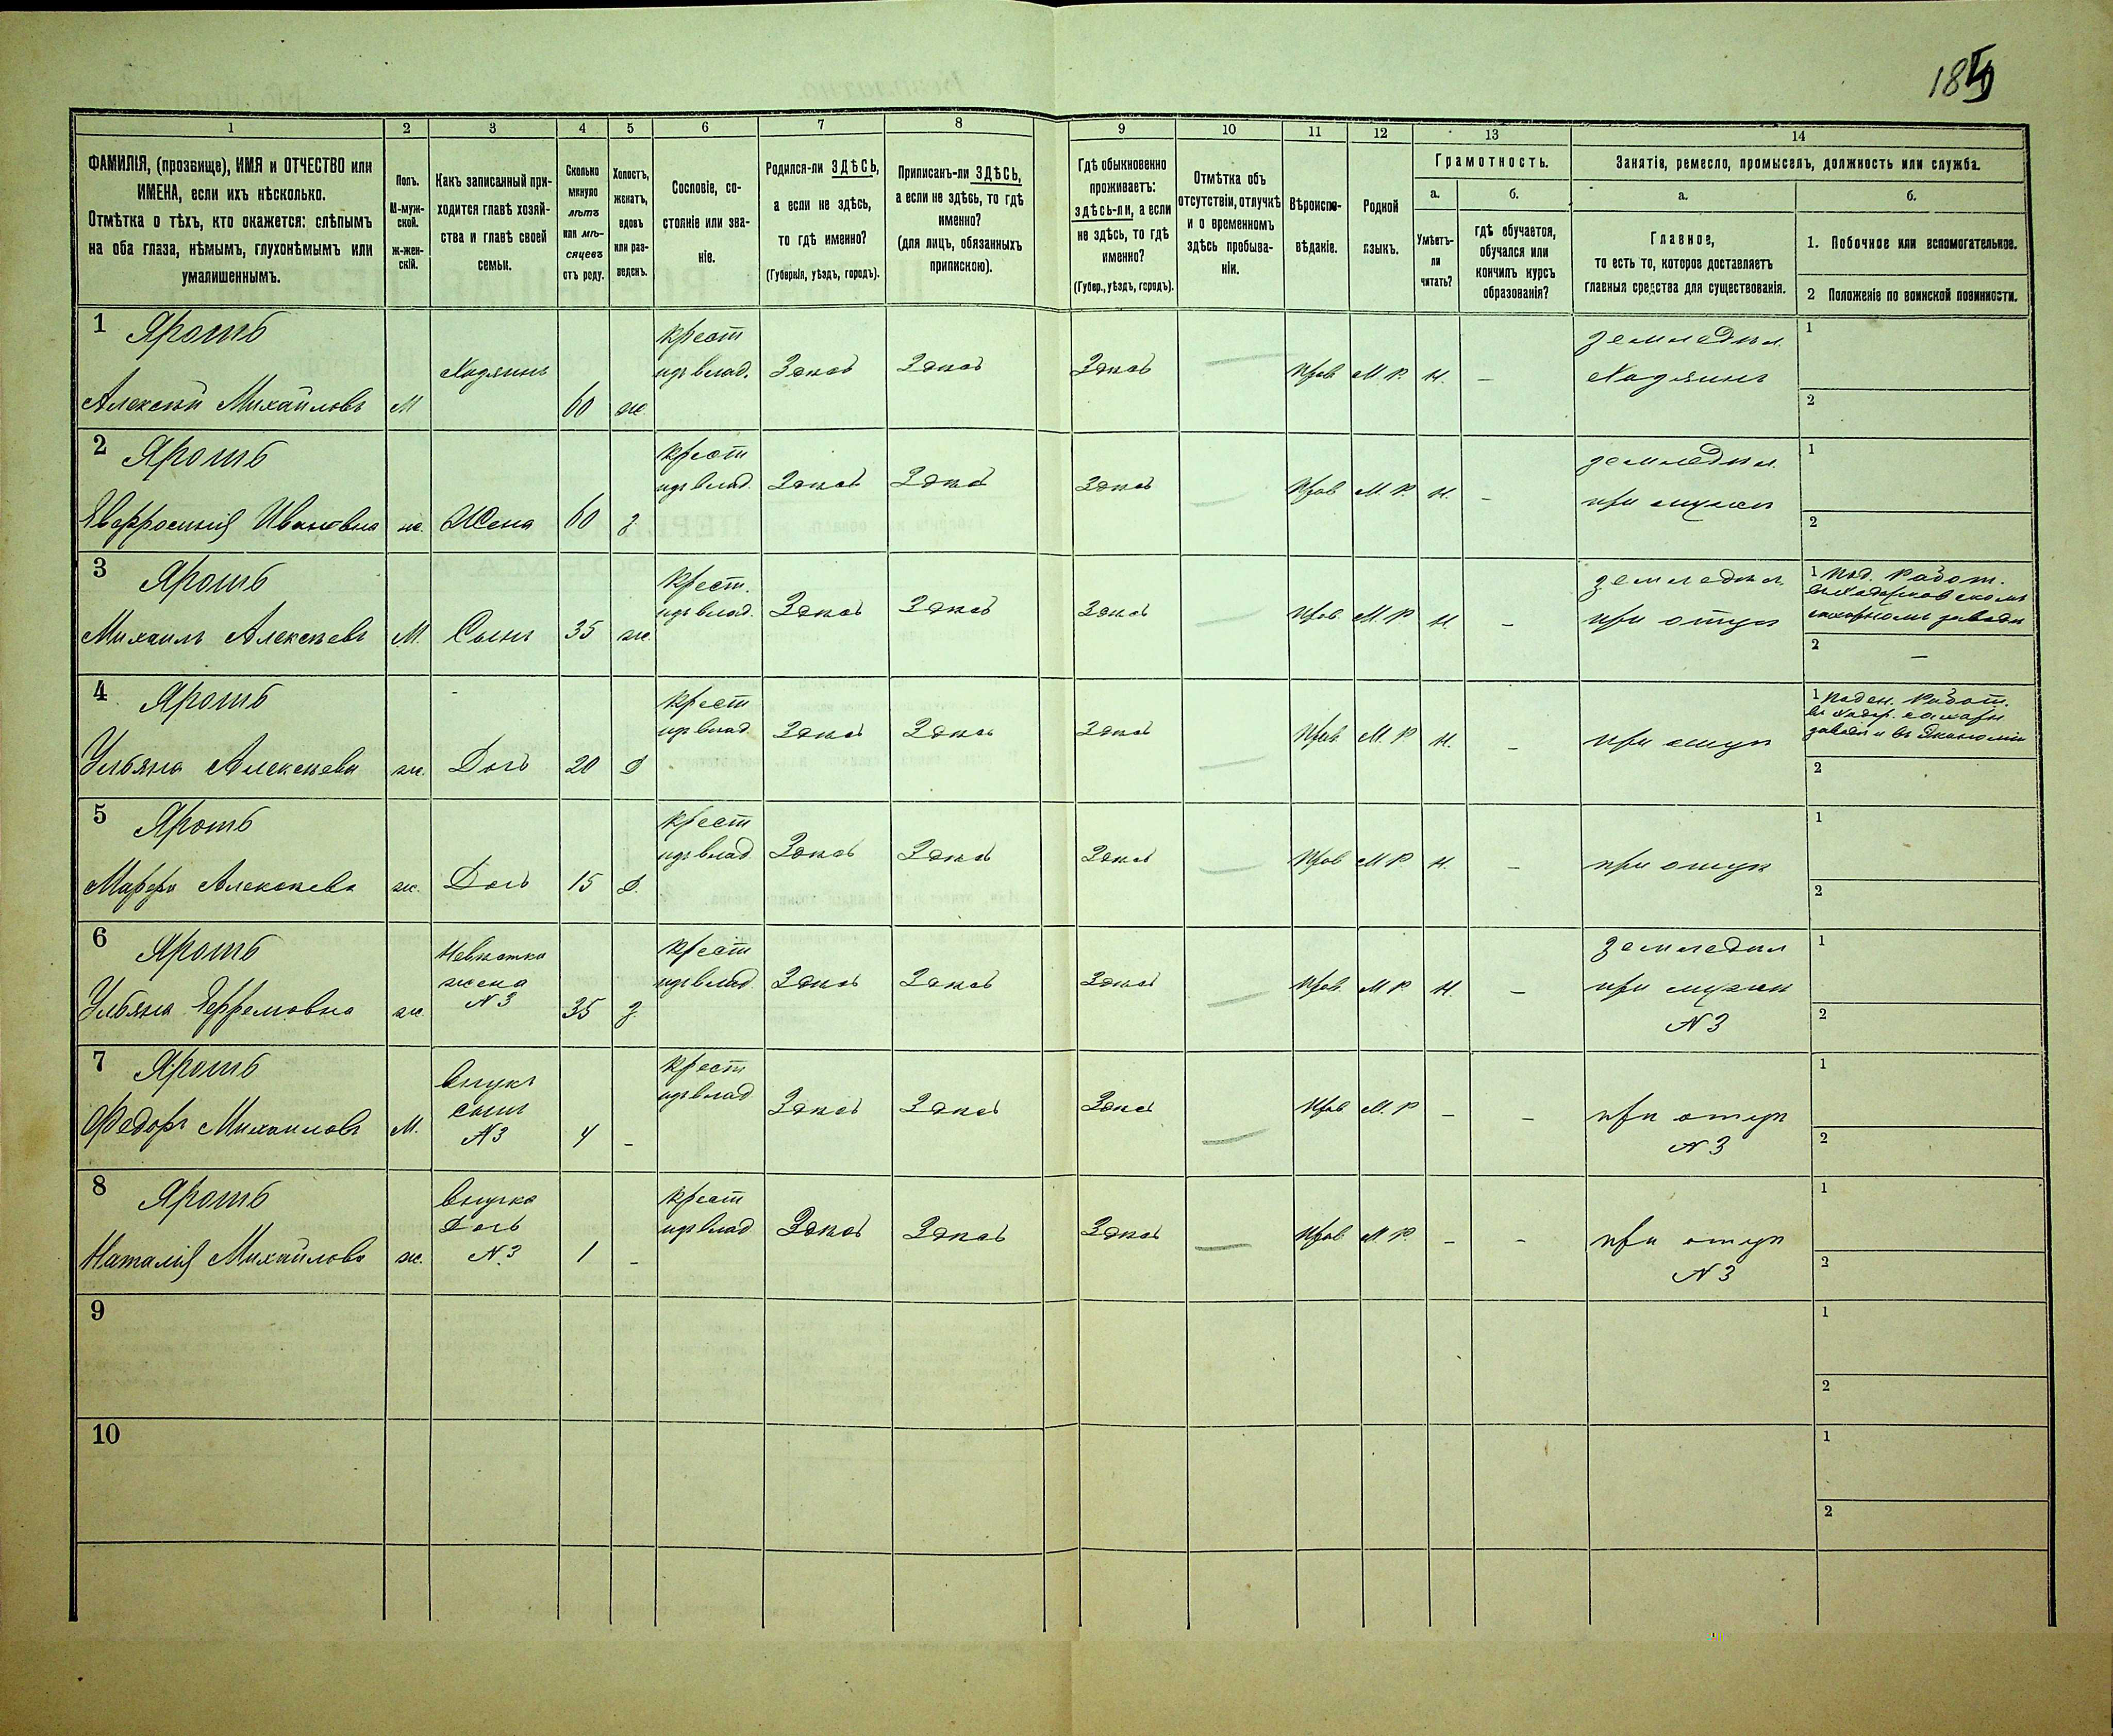 185
1
2
3
4
5
6
7
8
9
10
11
12
13
14
ФАМИЛІЯ, (прозвище), ИМЯ и ОТЧЕСТВО или
ИМЕНА, если ихъ нѣсколько.
Отмѣтка о тѣхъ, кто окажется: слѣпымъ
на оба глаза, нѣмымъ, глухонѣмымъ или
умалишеннымъ.
Полъ.
М-муж-
ской.
ж-жен-
скій.
Какъ записанный при-
ходится главѣ хозяй-
ства и главѣ своей
семьи.
Сколько
минуло
лѣтъ
или мѣ-
сяцевъ
отъ роду.
Холостъ,
женатъ,
вдовъ
или раз-
веденъ.
Сословіе, со-
стояніе или зва-
ніе.
Родился-ли ЗДѢСЬ,
а если не здѣсь,
то гдѣ именно?
(Губернія, уѣздъ, городъ).
Приписанъ-ли ЗДѢСЬ,
а если не здѣсь, то гдѣ
именно?
(для лицъ, обязанныхъ
припискою).
Гдѣ обыкновенно
проживаетъ:
здѣсь-ли, а если
не здѣсь, то гдѣ
именно?
(Губер., уѣздъ, городъ).
Отмѣтка объ
отсутствіи, отлучкѣ
и о временномъ
здѣсь пребыва-
ніи.
Вѣроиспо-
вѣданіе.
Родной
языкъ.
Грамотность.
а.
Умѣетъ-
ли
читать?
б.
гдѣ обучается,
обучался или
кончилъ курсъ
образованія?
Занятіе, ремесло, промыселъ, должность или служба.
а.
Главное,
то есть то, которое доставляетъ
главныя средства для существованія.
б.
1. Побочное или вспомогательное.
2 Положеніе по воинской повинности.
1 Ярошъ
Алексѣй Михайловъ
М
Хозяинъ
60
ж.
крест
изъ влад.
Здѣсь
Здѣсь
Здѣсь
—
Прав
М. Р.
Н.
—
земледѣл.
Хозяинъ
1
2
2 Ярошъ
Евфросинія Ивановна
ж.
Жена
60
з
крест
изъ влад.
Здѣсь
Здѣсь
Здѣсь
—
Прав
М. Р.
Н.
—
земледѣл.
при мужѣ
1
2
3 Ярошъ
Михаилъ Алексѣевъ
М.
Сынъ
35
ж.
Крест.
изъ влад.
Здѣсь
Здѣсь
Здѣсь
—
Прав
М. Р
Н.
—
земледѣл.
при отцѣ
1 Под. Работ.
сахарномъ заводѣ
2 —
4 Ярошъ
Ульяна Алексѣева
ж.
Дочь
20
д
крест
изъ влад
Здѣсь
Здѣсь
Здѣсь
—
Прав.
М. Р
Н.
—
при отцѣ
1 Поден. Работ.
заводѣ и въ Экономіи
2
5 Ярошъ
Марфа Алексѣева
ж.
Дочь
15
д.
крест
изъ влад
Здѣсь
Здѣсь
Здѣсь
—
Прав
М Р.
Н.
—
при отцѣ
1
2
6 Ярошъ
Ульяна Ефремовна
ж.
Невѣстка
жена
N 3
35
з.
крест
изъ влад
Здѣсь
Здѣсь
Здѣсь
—
Прав.
М Р.
Н.
—
земледѣл
при мужѣ
N 3
1
2
7 Ярошъ
Федоръ Михаиловъ
М.
внукъ
сынъ
N 3
4
–
крест
изъ влад
Здѣсь
Здѣсь
Здѣсь
—
Прав
М. Р
–
–
при отцѣ
N 3
1
2
8 Ярошъ
Наталія Михайлова
ж.
внучка
Дочь
N. 3
1
–
крест
изъ влад
Здѣсь
Здѣсь
Здѣсь
—
Прав
М. Р.
–
–
при отцѣ
N 3
1
2
9
1
2
10
1
2